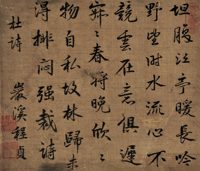 坦腹江亭暖長吟
野望時水流心不
競雲在意俱遲
寂〻春將晚欣〻
物自私故林歸未
得排悶強裁詩
杜詩
巖溪程貞